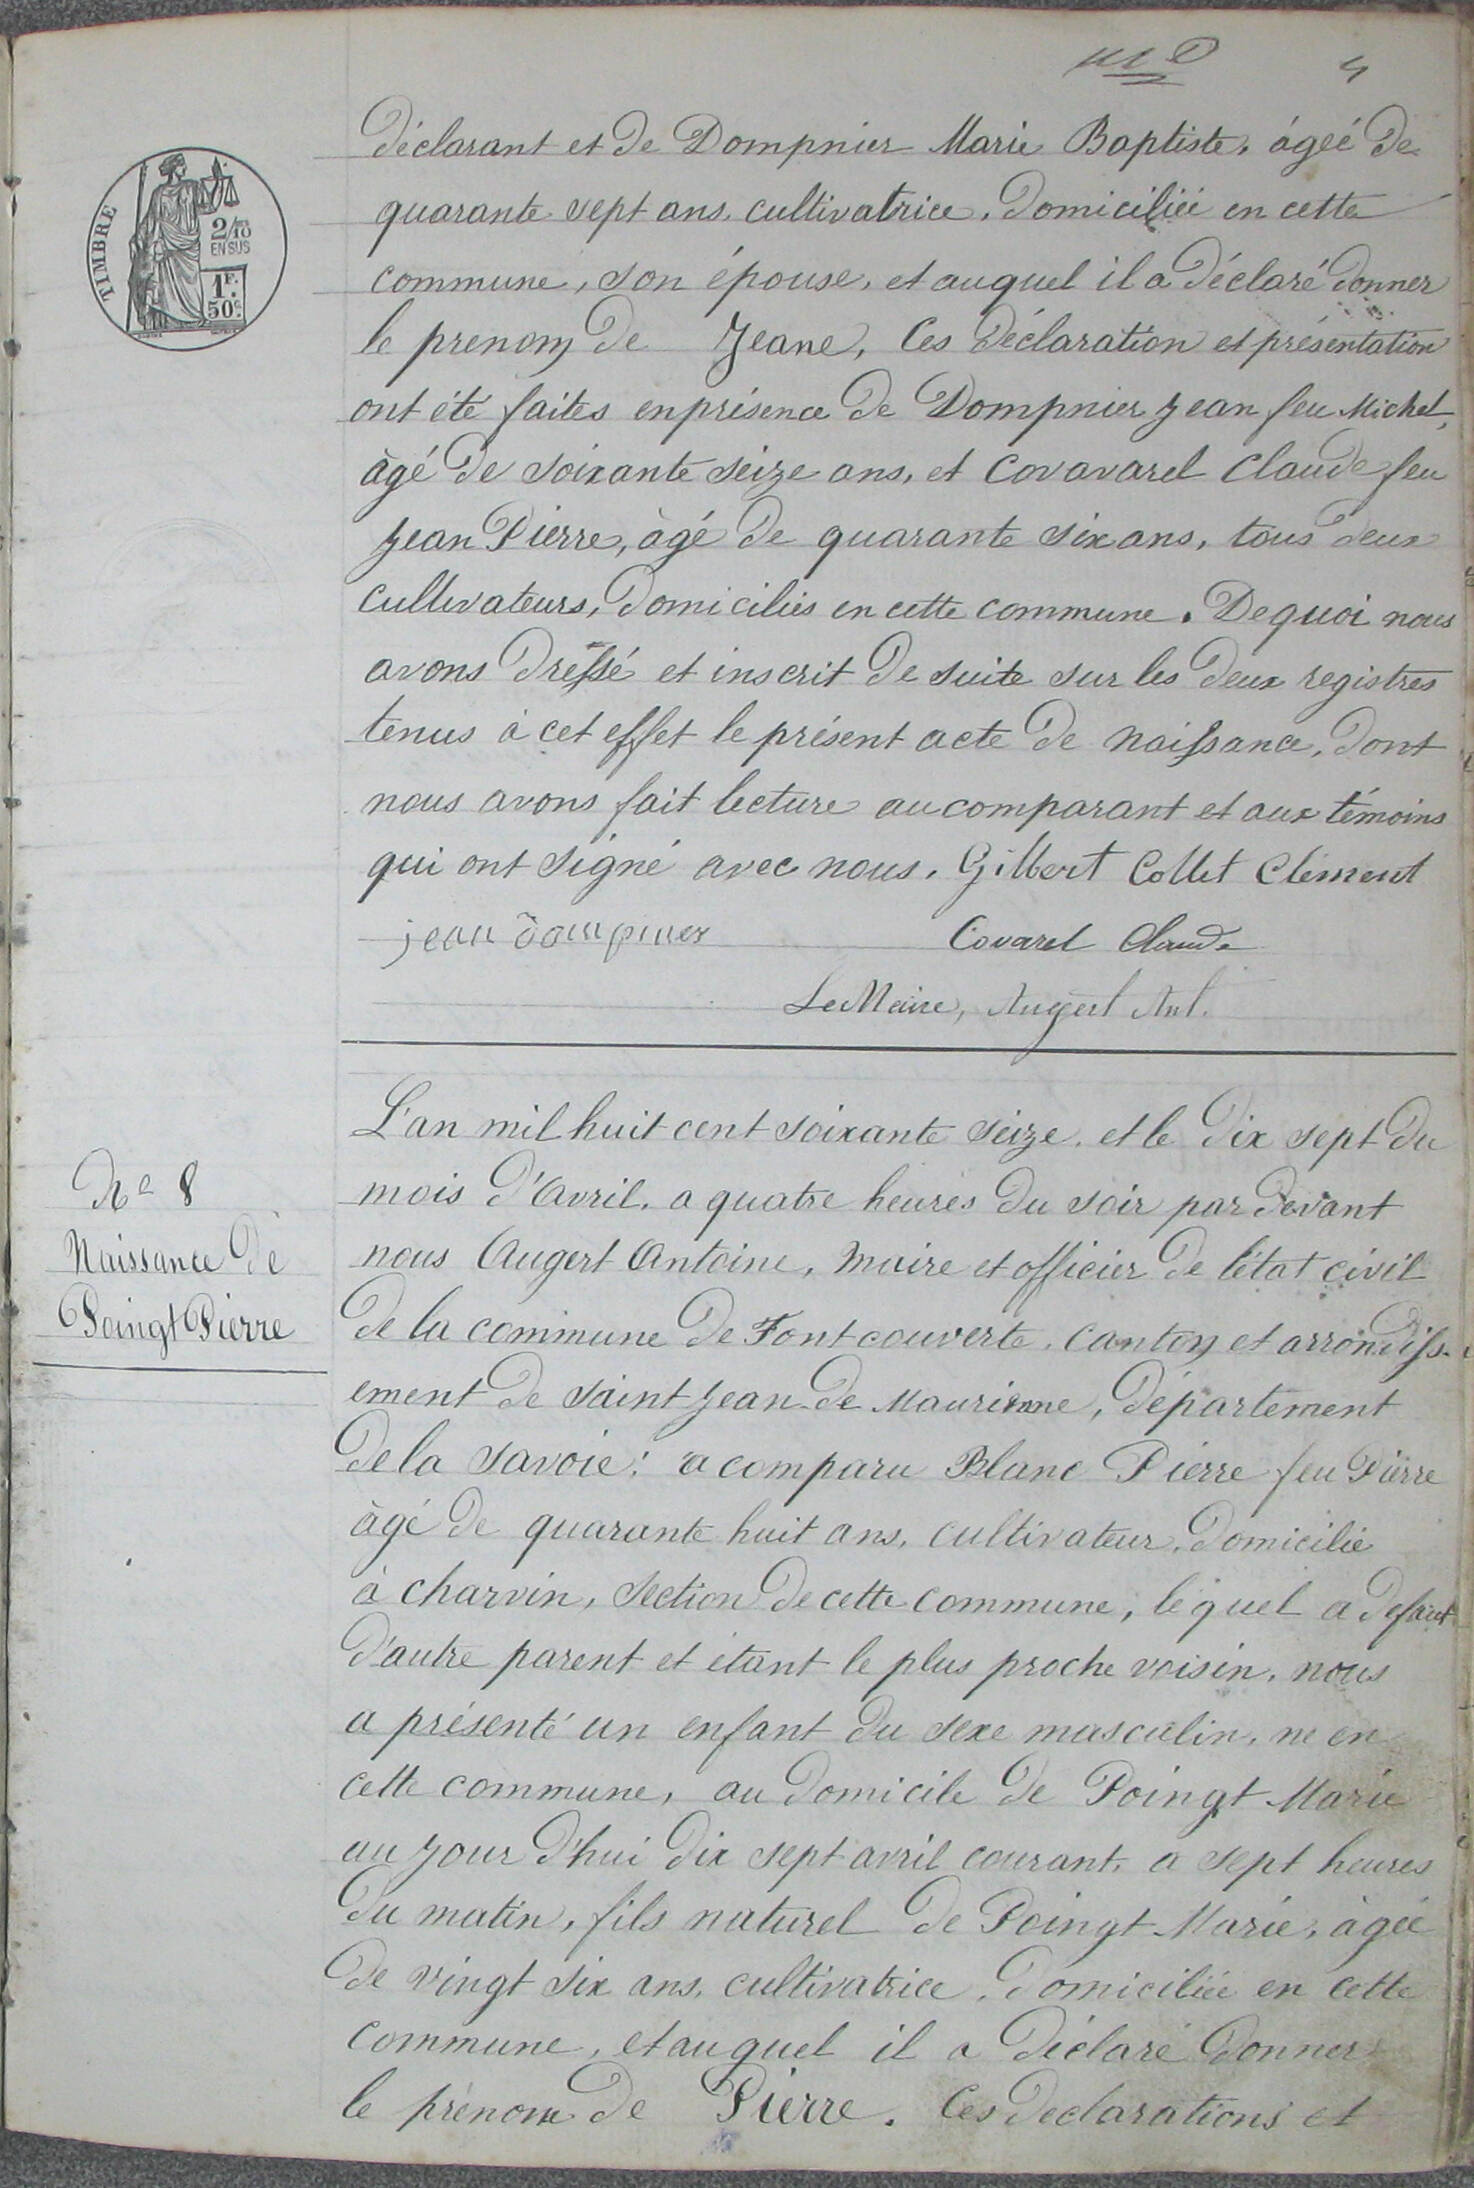 4
TIMBRE
2/10
EN SUS
1F.
50c.
déclarant et de Dompnier Marie Baptiste, ágeé de
quarante sept ans, cultivatrice, domiciliée en cette
commune, son épouse, et auquel il a déclaré donner
le prenom de Jeane, Ces déclaration et présentation
ont été faites enprésence de Dompnier Jean feu Michel,
àgé de soixante seize ans, et Covavarel Claude feu
Jean Pierre, àgé de quarante six ans, tous deux
cultivateurs, domiciliés en cette commune. De quoi nous
avons dressé et inscrit de suite sur les deux registres
tenus à cet effet le présent acte de naissance, dont
nous avons fait lecture au comparant et aux témoins
qui ont signé avec nous. Gilbert Collet Clément
jean dompnier Covarel Claude
Le Maire, Augert Ant.
L'an mil huit cent soixante seize, et le dix sept du
mois d'Avril, a quatre heures du soir par devant
nous Augert Antoine, Maire et officier de l'état civil
de la commune de Fontcouverte, canton et arrondiss-
ement de Saint Jean de Maurienne, département
de la Savoie; a comparu Blanc Pierre feu Pierre
àgé de quarante huit ans, cultivateur, domicilié
à Charvin, section de cette commune, lequel a defaut
d'autre parent et étant le plus proche voisin, nous
a présenté un enfant du sexe masculin, né en
cette commune, au domicile de Poingt Marie
au jour d'hui dix sept avril courant, a sept heures
du matin, fils naturel de Poingt Marie, àgée
de vingt six ans, cultivatrice, domiciliée en cette
commune, et auquel il a déclaré donner
le prénom de Pierre. Ces declarations et
No 8
Naissance de
Poingt Pierre